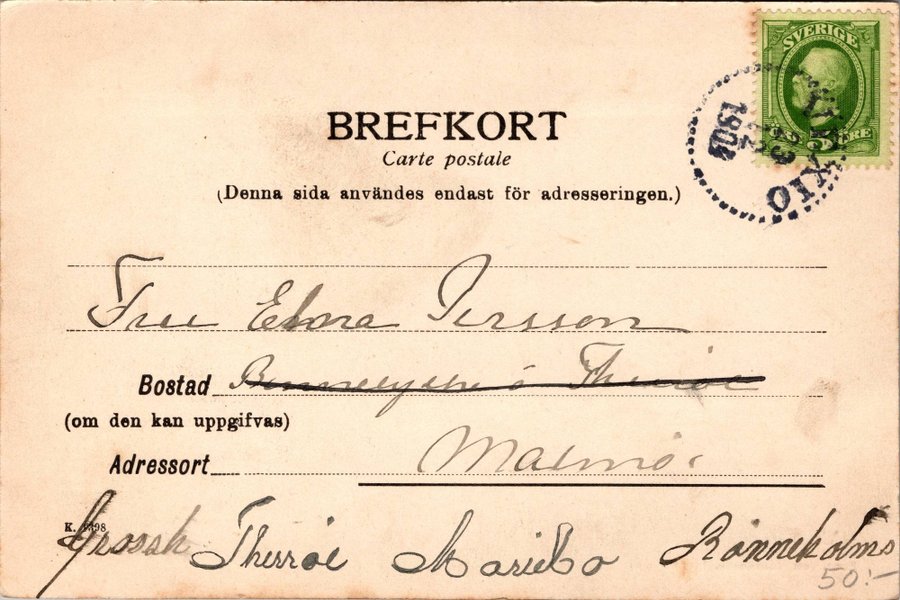 SVERIGE
1904
BREFKORT
Carte postale
(Denna sida användes endast för adresseringen.)
Fru Elvra Persson
Bostad
(om den kan uppgifvas)
Adressort Malmö
K. 
Grossh Therröe Mariebo Rönneholms
50:-